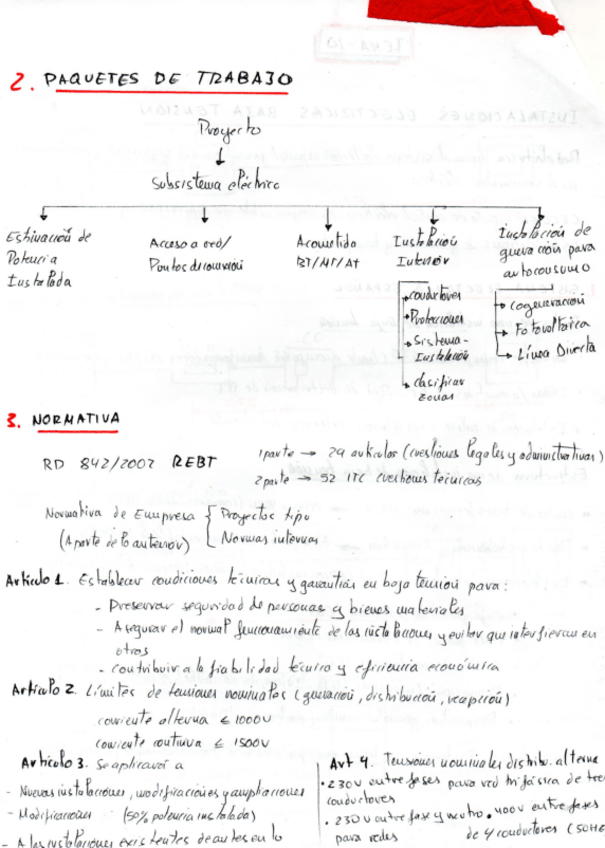 2. PAQUETES DE TRABAJO
Proyecto
Subsistema eléctrico
Estimación de
Potencia
Instalada
Acceso a red/
Puntos de conexión
Acometida
BT/MT/AT
Instalación
Interior
conductores
Protecciones
Sistema-
Instalación
clasificar
zonas
Instalación de
generación para
autoconsumo
cogeneración
Fotovoltaica
Línea Directa
3. NORMATIVA
RD 842/2002 REBT
1 parte → 29 artículos (cuestiones legales y administrativas)
2 parte → 52 ITC cuestiones técnicas
Normativa de Empresa { Proyectos tipo
(Aparte de lo anterior) Normas internas
Artículo 1. Establecer condiciones técnicas y garantías en baja tensión para:
- Preservar seguridad de personas y bienes materiales
- Asegurar el normal funcionamiento de las instalaciones y evitar que interfieran en
otros
- contribuir a la fiabilidad técnica y eficiencia económica
Artículo 2. Límites de tensiones nominales (generación, distribución, recepción)
corriente alterna ≤ 1000V
corriente continua ≤ 1500V
Artículo 3. Se aplicará a
- Nuevas instalaciones, modificaciones y ampliaciones
- Modificaciones (50% potencia instalada)
- A las instalaciones existentes de antes en lo
Art 4. Tensiones nominales distrib. alterna
• 230V entre fases para red trifásica de tres
conductores
• 230V entre fase y neutro. 400V entre fases
para redes de 4 conductores (50Hz